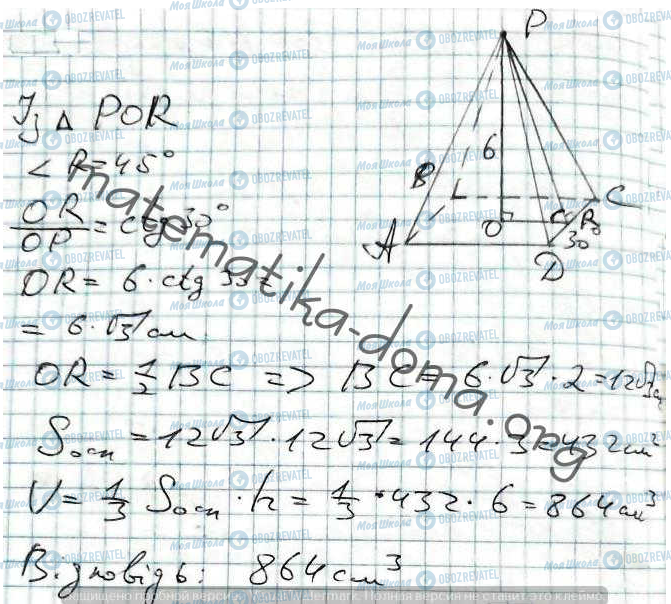 P
Із △ POR
∠ R = 45°
OR/OP = ctg 30°
OR = 6 · ctg 30° =
= 6 · √3 см
OR = 1/2 BC => BC = 6 · √3 · 2 = 12√3 см
Sосн = 12√3 · 12√3 = 144 · 3 = 432 см²
V = 1/3 Sосн · h = 1/3 · 432 · 6 = 864 см³
Відповідь: 864 см³
6
B
C
A
O
R
30°
D
matematika-doma.org
МояШкола OBOZREVATEL
Защищено пробной версией Visual Watermark. Полная версия не ставит это клеймо.